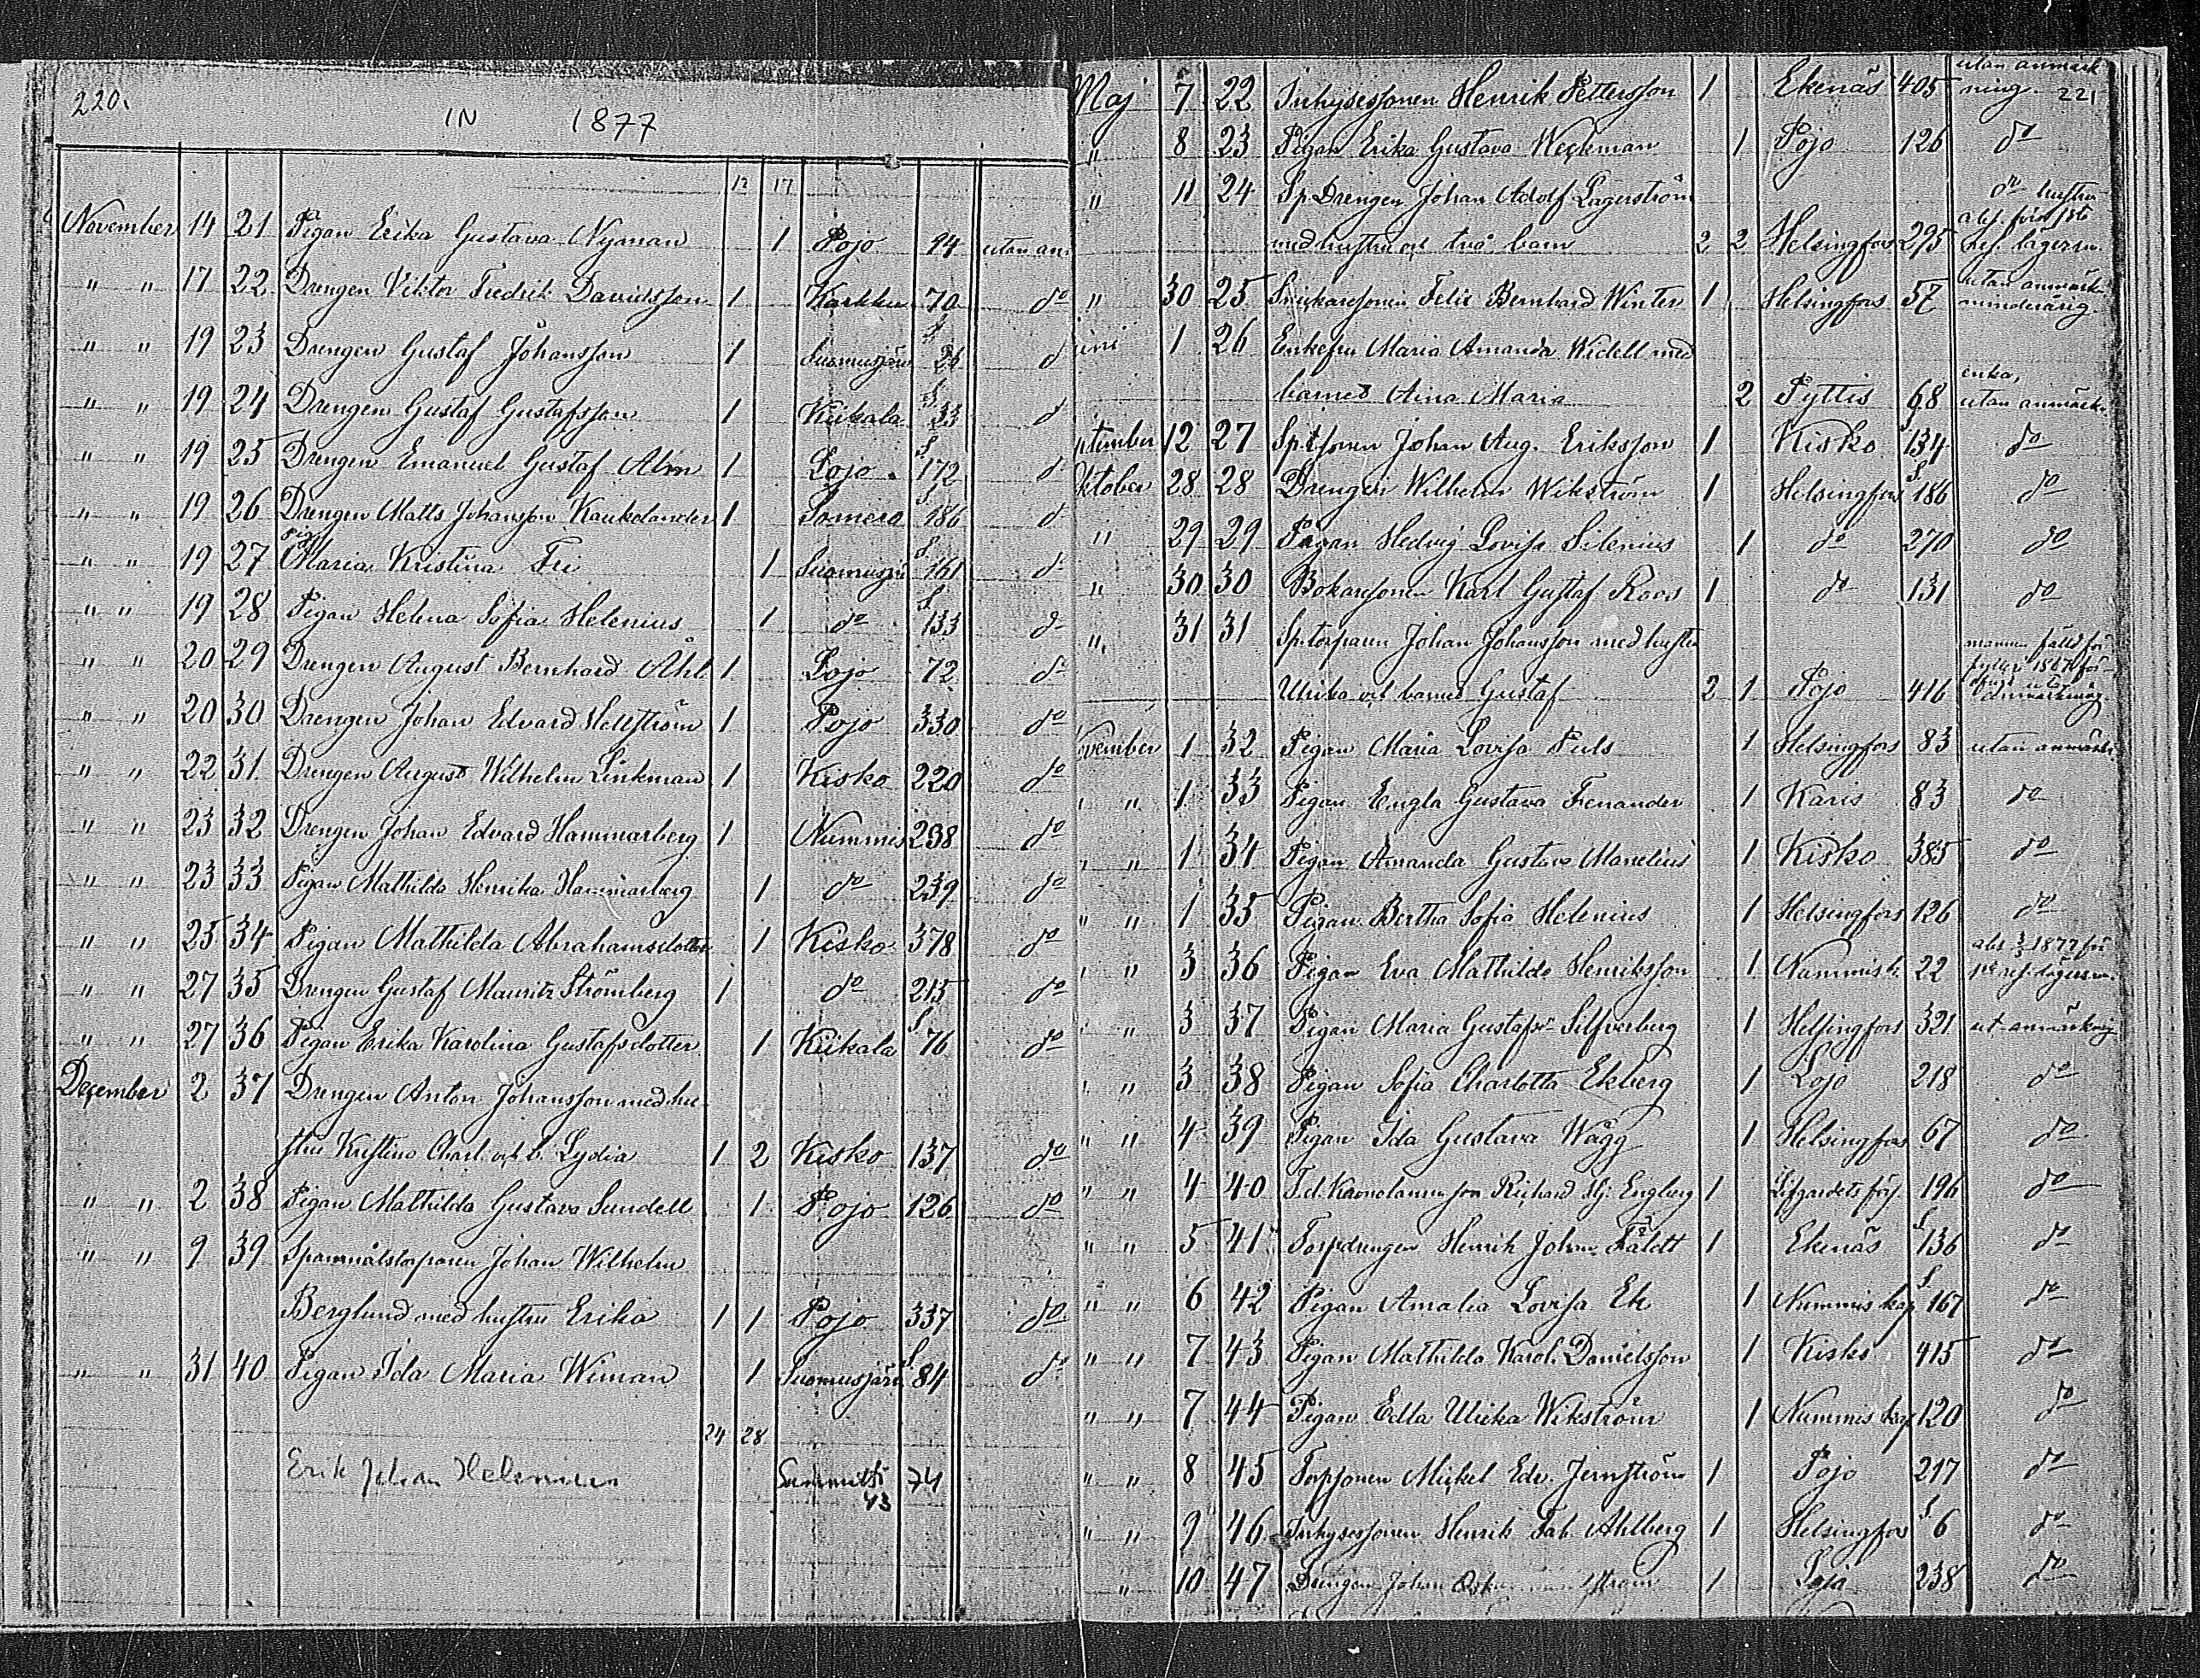 220.
IN 1877
12 17
November 14 21 Pigan Erika Gustava Nyman 1 Pojo 94 utan an
" " 17 22 Drengen Viktor Fredrik Davidsson 1 Karkku 70 do
" " 19 23 Drengen Gustaf Johansson 1 Suomusjärvi S. 26 d
" " 19 24 Drengen Gustaf Gustafsson 1 Kiikala S. 33 d
" " 19 25 Drengen Emanuel Gustaf Alm 1 Lojo S. 172 d
" " 19 26 Drengen Matts Johansson Kaukolander 1 Somero S. 186 d
" " 19 27 Pig. Maria Kristina Fri 1 Suomusjä S. 161 d
" " 19 28 Pigan Helena Sofia Helenius 1 do S. 133 d
" " 20 29 Drengen August Bernhard Åhl 1 Lojo 72 do
" " 20 30 Drengen Johan Edvard Hellström 1 Pojo 330 do
" " 22 31 Drengen August Wilhelm Linkman 1 Kisko 220 do
" " 23 32 Drengen Johan Edvard Hammarberg 1 Nummis 238 do
" " 23 33 Pigan Mathilda Henrika Hammarberg 1 do 239 do
" " 25 34 Pigan Mathilda Abrahamsdotter 1 Kisko 378 do
" " 27 35 Drengen Gustaf Mauritz Strömberg 1 do 215 do
" " 27 36 Pigan Erika Karolina Gustafsdotter 1 Kiikala S. 76 do
December 2 37 Drengen Anton Johansson med hu-
stru Kristina Charl. och b. Lydia 1 2 Kisko 137 do
" " 2 38 Pigan Mathilda Gustava Sundell 1 Pojo 126 do
" " 9 39 Spannmålstorparen Johan Wilhelm
Berglund med hustru Erika 1 1 Pojo 337 do
" " 31 40 Pigan Ida Maria Wiman 1 Suomusjärvi S. 84 do
24 28
Erik Johan Helenius Sammatti 74
43
Maj 7 22 Inhysessonen Henrik Pettersson 1 Ekenäs 405 utan anmärk
ning. 221
" 8 23 Pigan Erika Gustava Weckman 1 Pojo 126 do
" 11 24 Sp. Drengen Johan Adolf Lagerström do hustru
med hustru och två barn 2 2 Helsingfors 295
" 30 25 Snickaresonen Felix Bernhard Winter 1 Helsingfors 57 utan anmärk. minderårig.
uni 1 26 Enkefru Maria Amanda Widell med
barnet Aina Maria 2 Pyttis 68 enka, utan anmärk.
ptember 12 27 Sp.t.sonen Johan Aug. Eriksson 1 Kisko S. 134 do
Oktober 28 28 Drengen Wilhelm Wikström 1 Helsingfors S. 186 do
" 29 29 Pigan Hedvig Lovisa Silenius 1 do 270 do
" 30 30 Bokaresonen Karl Gustaf Roos 1 do 131 do
" 31 31 Sp.torparen Johan Johansson med hustru
Ulrika och barnet Gustaf 2 1 Pojo 416 mannen fälld för fylleri 1867 för öfrigt utan anmärkning
ovember 1 32 Pigan Maria Lovisa Puls 1 Helsingfors 83 utan anmärk.
" " 1 33 Pigan Engla Gustava Frenander 1 Karis 83 do
" " 1 34 Pigan Amanda Gustava Manelius 1 Kisko 385 do
" " 1 35 Pigan Bertha Sofia Helenius 1 Helsingfors 126 do
" " 3 36 Pigan Eva Mathilda Henriksson 1 Nummis k. 22
" " 3 37 Pigan Maria Gustafva Silfverberg 1 Helsingfors 321 ut. anmärkning
" " 3 38 Pigan Sofia Charlotta Ekberg 1 Lojo 218 do
" " 4 39 Pigan Ida Gustava Wägg 1 Helsingfors 67 do
" " 4 40 Richard Hj. Engberg 1 Lifgardets förs. 196 do
" " 5 41 Torpdrengen Henrik Johan Fäldt 1 Ekenäs S. 136 do
" " 6 42 Pigan Amalia Lovisa Ek 1 Nummis kap S. 167 do
" " 7 43 Pigan Mathilda Karol. Danielsson 1 Kisko 415 do
" " 7 44 Pigan Edla Ulrika Wikström 1 Nummis kap 120 do
" " 8 45 Torpsonen Mickel Edv. Jernström 1 Pojo 217 do
" " 9 46 Inhysessonen Henrik Fab. Ahlberg 1 Helsingfors S. 6 do
" 10 47 Drengen Johan Oskar ström 1 Lojo 238 do